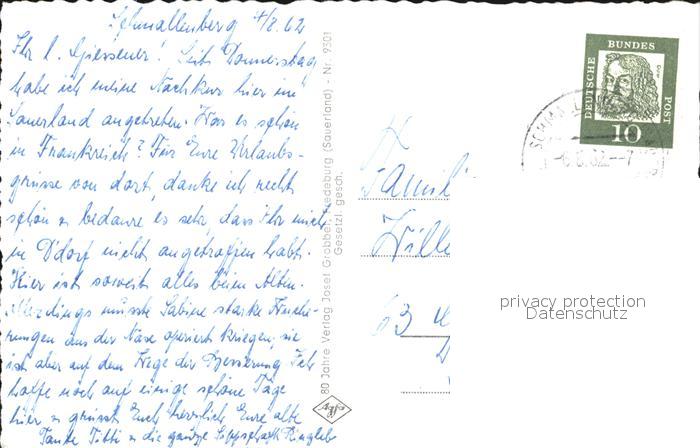 Schmallenberg 4/8.62
Ihr l. Giessener! Seit Donnerstag
habe ich meine Nachkur hier im
Sauerland angetreten. War es schön
in Frankreich? Für Eure Urlaubs-
grüsse von dort, danke ich recht
schön u bedaure es sehr, dass Ihr mich
in Ddorf nicht angetroffen habt.
Hier ist soweit alles beim Alten.
Allerdings musste Sabine starke
aus der Nase operiert kriegen, sie
ist aber auf dem Wege der Besserung Ich
hoffe noch auf einige schöne Tage
hier u grüsst Euch herzlich Eure alte
Tante Titti u die ganze Sippschaft
80 Jahre Verlag Josef Grobbel, Fredeburg (Sauerland) - Nr. 9301
Gesetzl. gesch.
DEUTSCHE BUNDES POST
10
Famili
Wille
63
privacy protection
Datenschutz